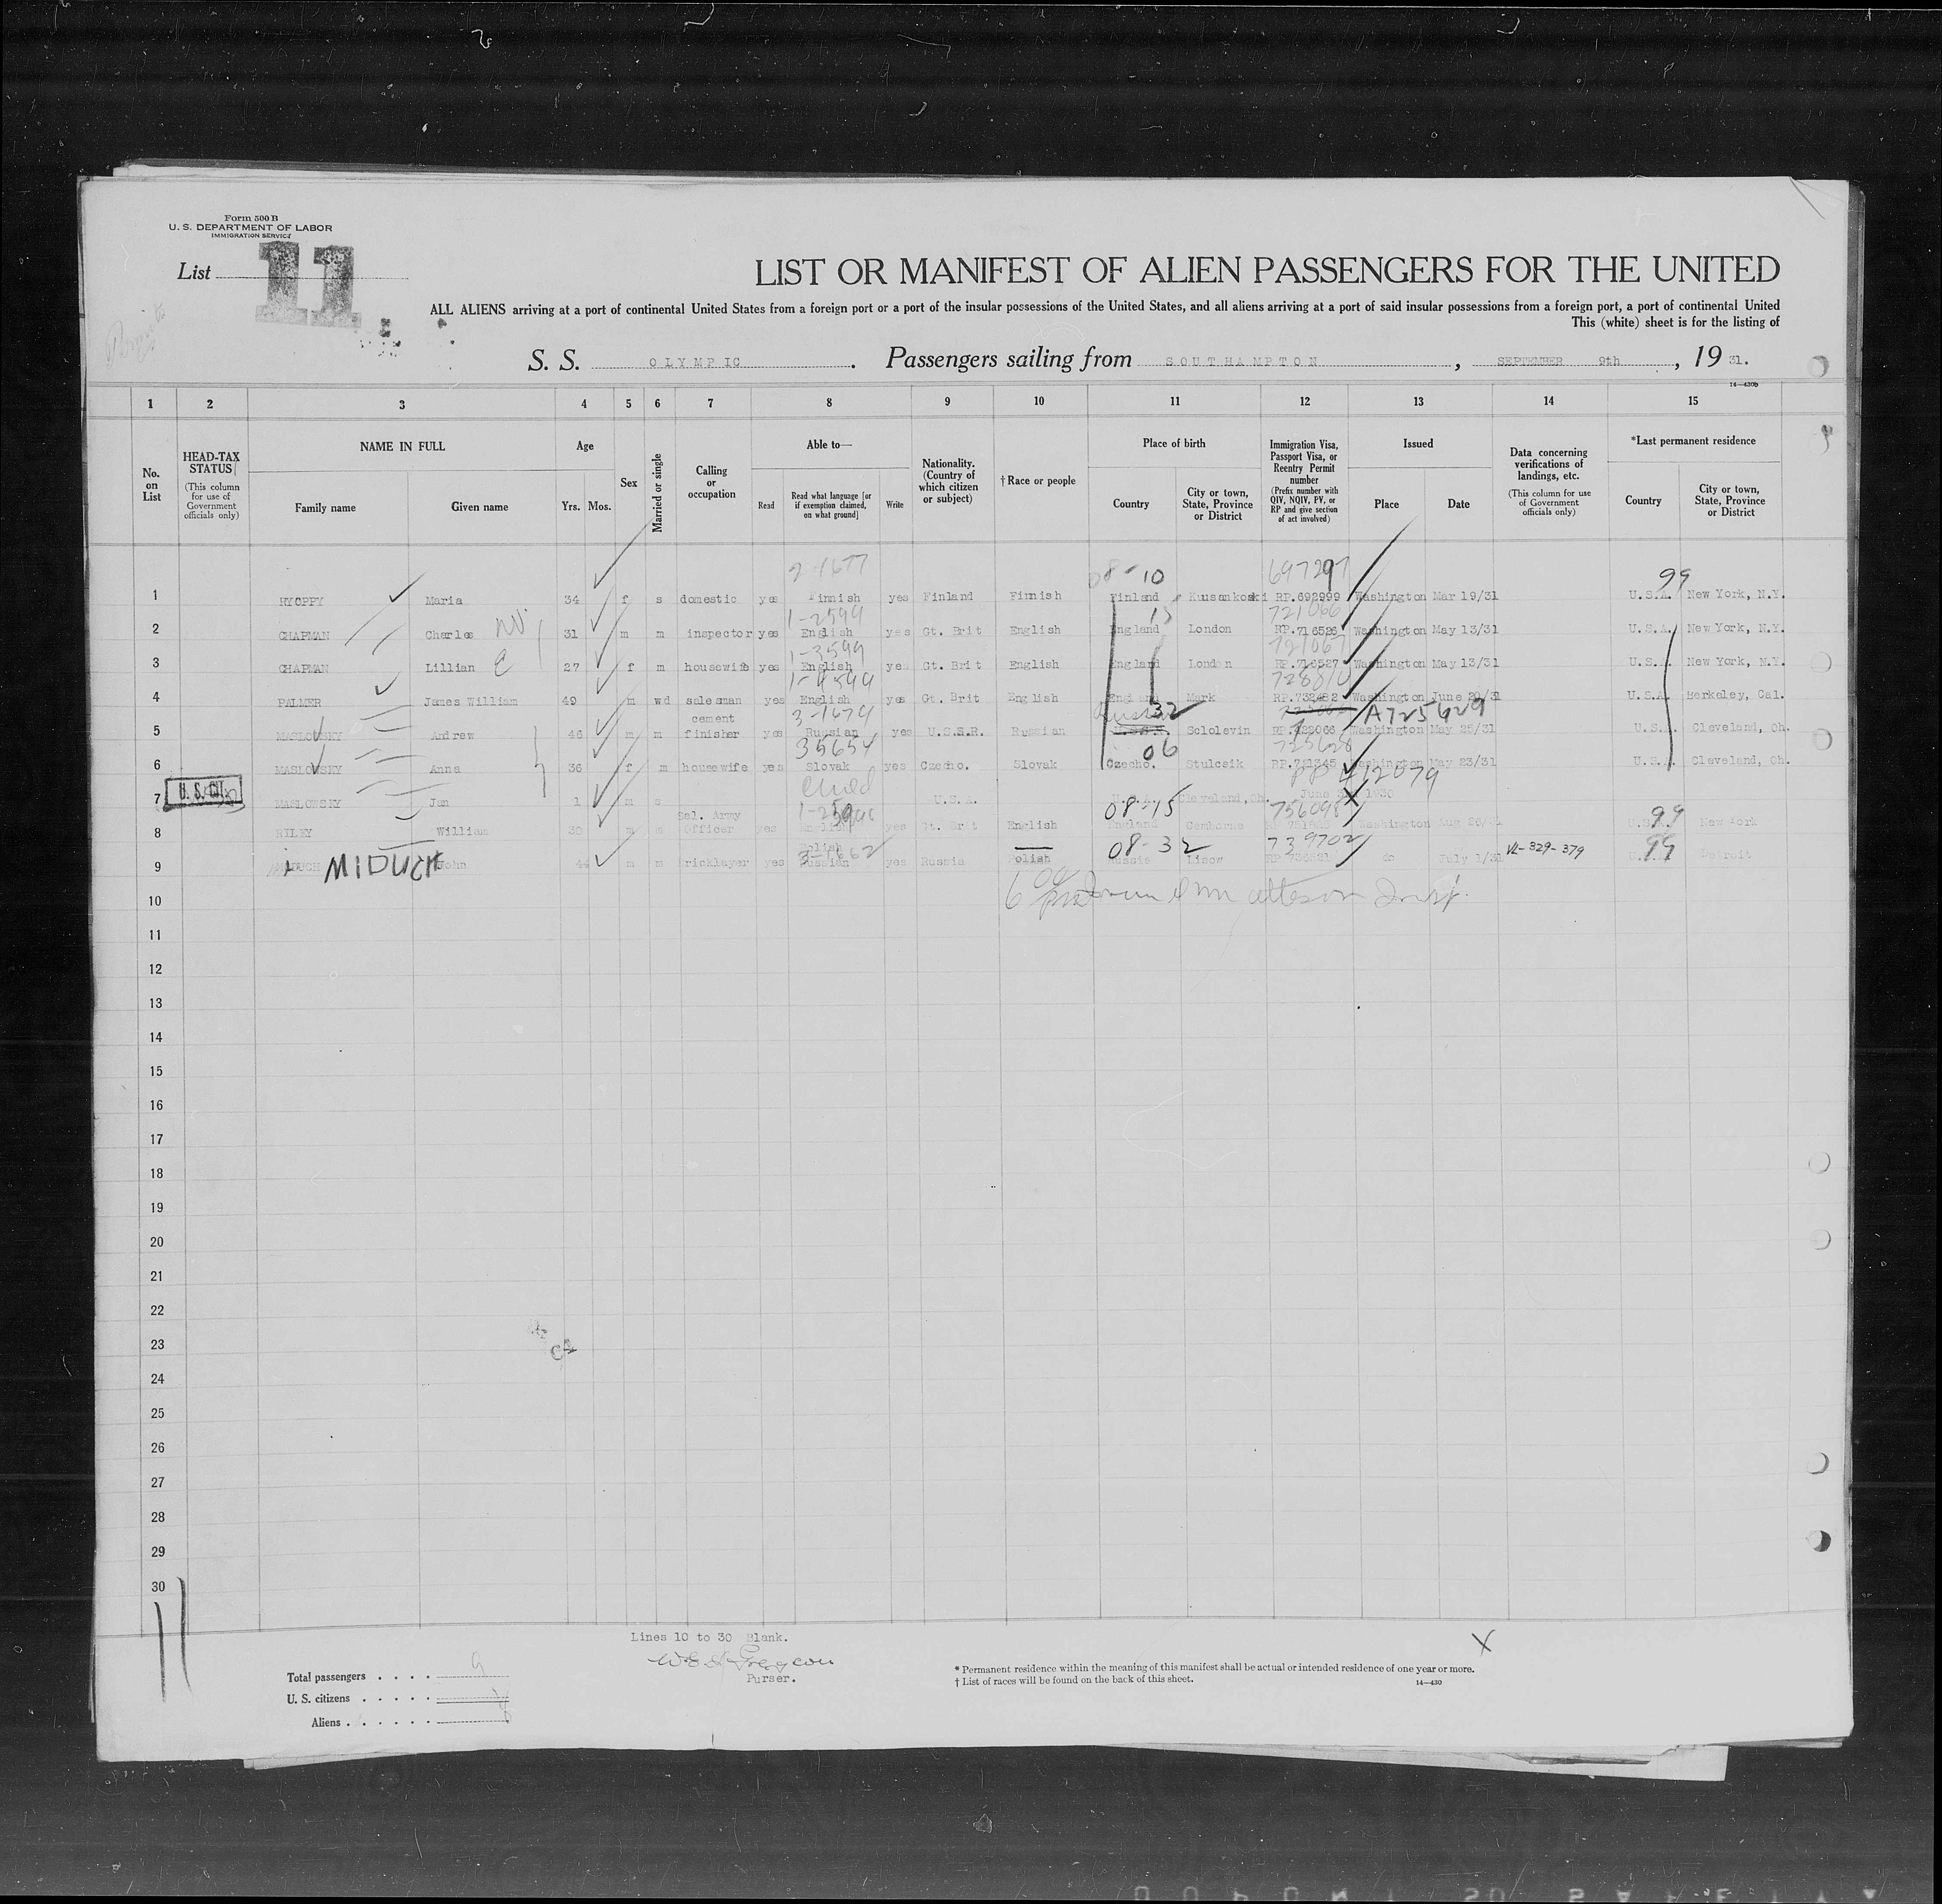 Form 500 B
U. S. DEPARTMENT OF LABOR
IMMIGRATION SERVICE
List 11
LIST OR MANIFEST OF ALIEN PASSENGERS FOR THE UNITED
ALL ALIENS arriving at a port of continental United States from a foreign port or a port of the insular possessions of the United States, and all aliens arriving at a port of said insular possessions from a foreign port, a port of continental United
This (white) sheet is for the listing of
S. S. OLYMPIC. Passengers sailing from SOUTHAMPTON, SEPTEMBER 9th, 19 31.
14—430b
1 2 3 4 5 6 7 8 9 10 11 12 13 14 15
No. on List
HEAD-TAX STATUS (This column for use of Government officials only)
NAME IN FULL Family name Given name
Age Yrs. Mos.
Sex
Married or single
Calling or occupation
Able to— Read Read what language [or if exemption claimed, on what ground] Write
Nationality. (Country of which citizen or subject)
†Race or people
Place of birth Country City or town, State, Province or District
Immigration Visa, Passport Visa, or Reentry Permit number (Prefix number with QIV, NQIV, PV, or RP and give section of act involved)
Issued Place Date
Data concerning verifications of landings, etc. (This column for use of Government officials only)
*Last permanent residence Country City or town, State, Province or District
2-1677 08-10 697297 99
1 HYOPPY Maria 34 f s domestic yes Finnish yes Finland Finnish Finland Kuusankoski RP.692999 Washington Mar 19/31 U.S.A. New York, N.Y.
1-2599 15 721066
2 CHAPMAN Charles 31 m m inspector yes English yes Gt. Brit English England London RP.716526 Washington May 13/31 U.S.A. New York, N.Y.
1-3599 721067
3 CHAPMAN Lillian 27 f m housewife yes English yes Gt. Brit English England London RP.716527 Washington May 13/31 U.S.A. New York, N.Y.
1-4599 728810
4 PALMER James William 49 m wd salesman yes English yes Gt. Brit English England Mark RP.732482 Washington June 29/31 U.S.A. Berkeley, Cal.
cement 3-1674 32 A725629
5 MASLOWSKY Andrew 46 m m finisher yes Russian yes U.S.S.R. Russian U.S.S.R. Sclolevin Washington May 25/31 U.S.A. Cleveland, Oh.
35654 06 725628
6 MASLOWSKY Anna 36 f m housewife yes Slovak yes Czecho. Slovak Czecho. Stulcsik RP.721345 Washington May 23/31 U.S.A. Cleveland, Oh.
U. S. CIT. child PP 412079
7 MASLOWSKY Jan 1 m s U.S.A. Cleveland, Oh. June 1930
Sal. Army 08-15 756098 99
8 RILEY William 30 m m Officer yes English yes Gt. Brit English England Camborne Washington Aug 26/31 U.S.A. New York
Polish 3-1662 08-32 739702 VL-329-379 99
9 MIDUCH John 44 m m Bricklayer yes Russian yes Russia Polish Russia Lisow do July 1/31 Detroit
10
11
12
13
14
15
16
17
18
19
20
21
22
23
24
25
26
27
28
29
30
Lines 10 to 30 Blank.
Purser.
Total passengers . . . . 9
U. S. citizens . . . . .
Aliens . . . . . .
* Permanent residence within the meaning of this manifest shall be actual or intended residence of one year or more.
† List of races will be found on the back of this sheet.
14—430
X